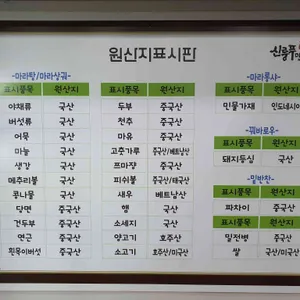 원산지표시판
-마라탕/마라샹궈-
표시품목 원산지
야채류 국산
버섯류 국산
어묵 국산
마늘 국산
생강 국산
메추리볼 국산
콩나물 국산
당면 중국산
건두부 중국산
연근 중국산
흰목이버섯 중국산
표시품목 원산지
두부 중국산
천추 중국산
마유 중국산
고춧가루 중국산/베트남산
쯔마장 중국산
피쉬볼 중국산/태국산
새우 베트남산
햄 국산
소세지 국산
양고기 호주산
소고기 호주산/미국산
-마라롱샤-
표시품목 원산지
민물가재 인도네시아
-꿔바로우-
표시품목 원산지
돼지등심 국산
-밑반찬-
표시품목 원산지
짜차이 중국산
표시품목 원산지
밀전병 중국산
쌀 국산/미국산